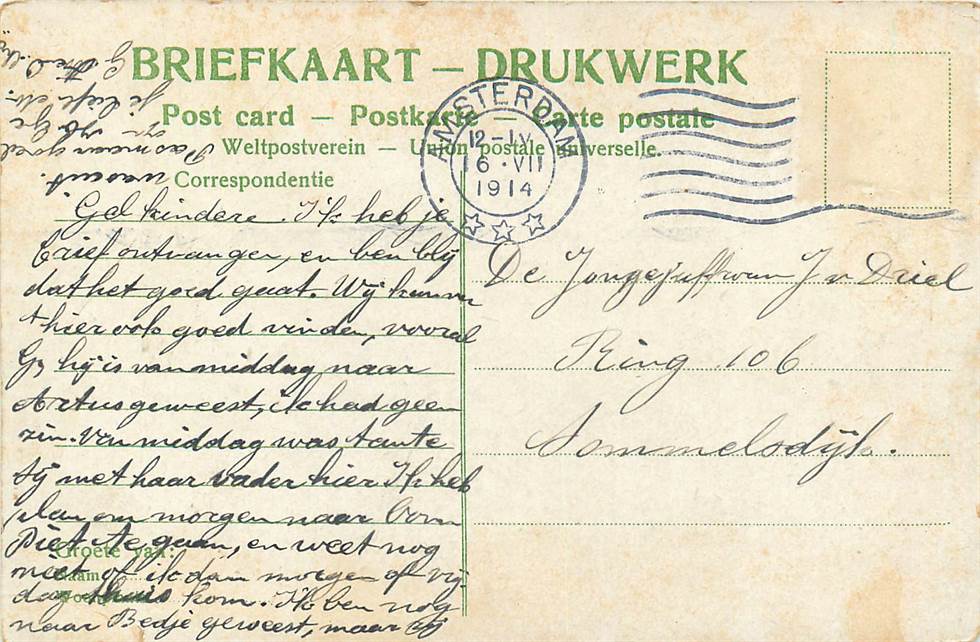 BRIEFKAART — DRUKWERK
Post card — Postkarte — Carte postale
Weltpostverein — Union postale universelle.
Correspondentie
AMSTERDAM
12-IV
16·VII
1914
Gel kindere. Ik heb je
brief ontvangen, en ben blij
dat het goed gaat. Wij kunnen
't hier ook goed vinden, vooral
G, hij is van middag naar
Artus geweest, ik had geen
zin. Van middag was tante
Sij met haar vader hier Ik heb
plan om morgen naar oom
Piet te gaan, en weet nog
niet of ik dan morgen of vrij-
dag thuis kom. Ik ben nog
naar Betje geweest, maar
Groete van:
Naam
De Jongejuffrouw J v Driel
Ring 106
Sommelsdijk.